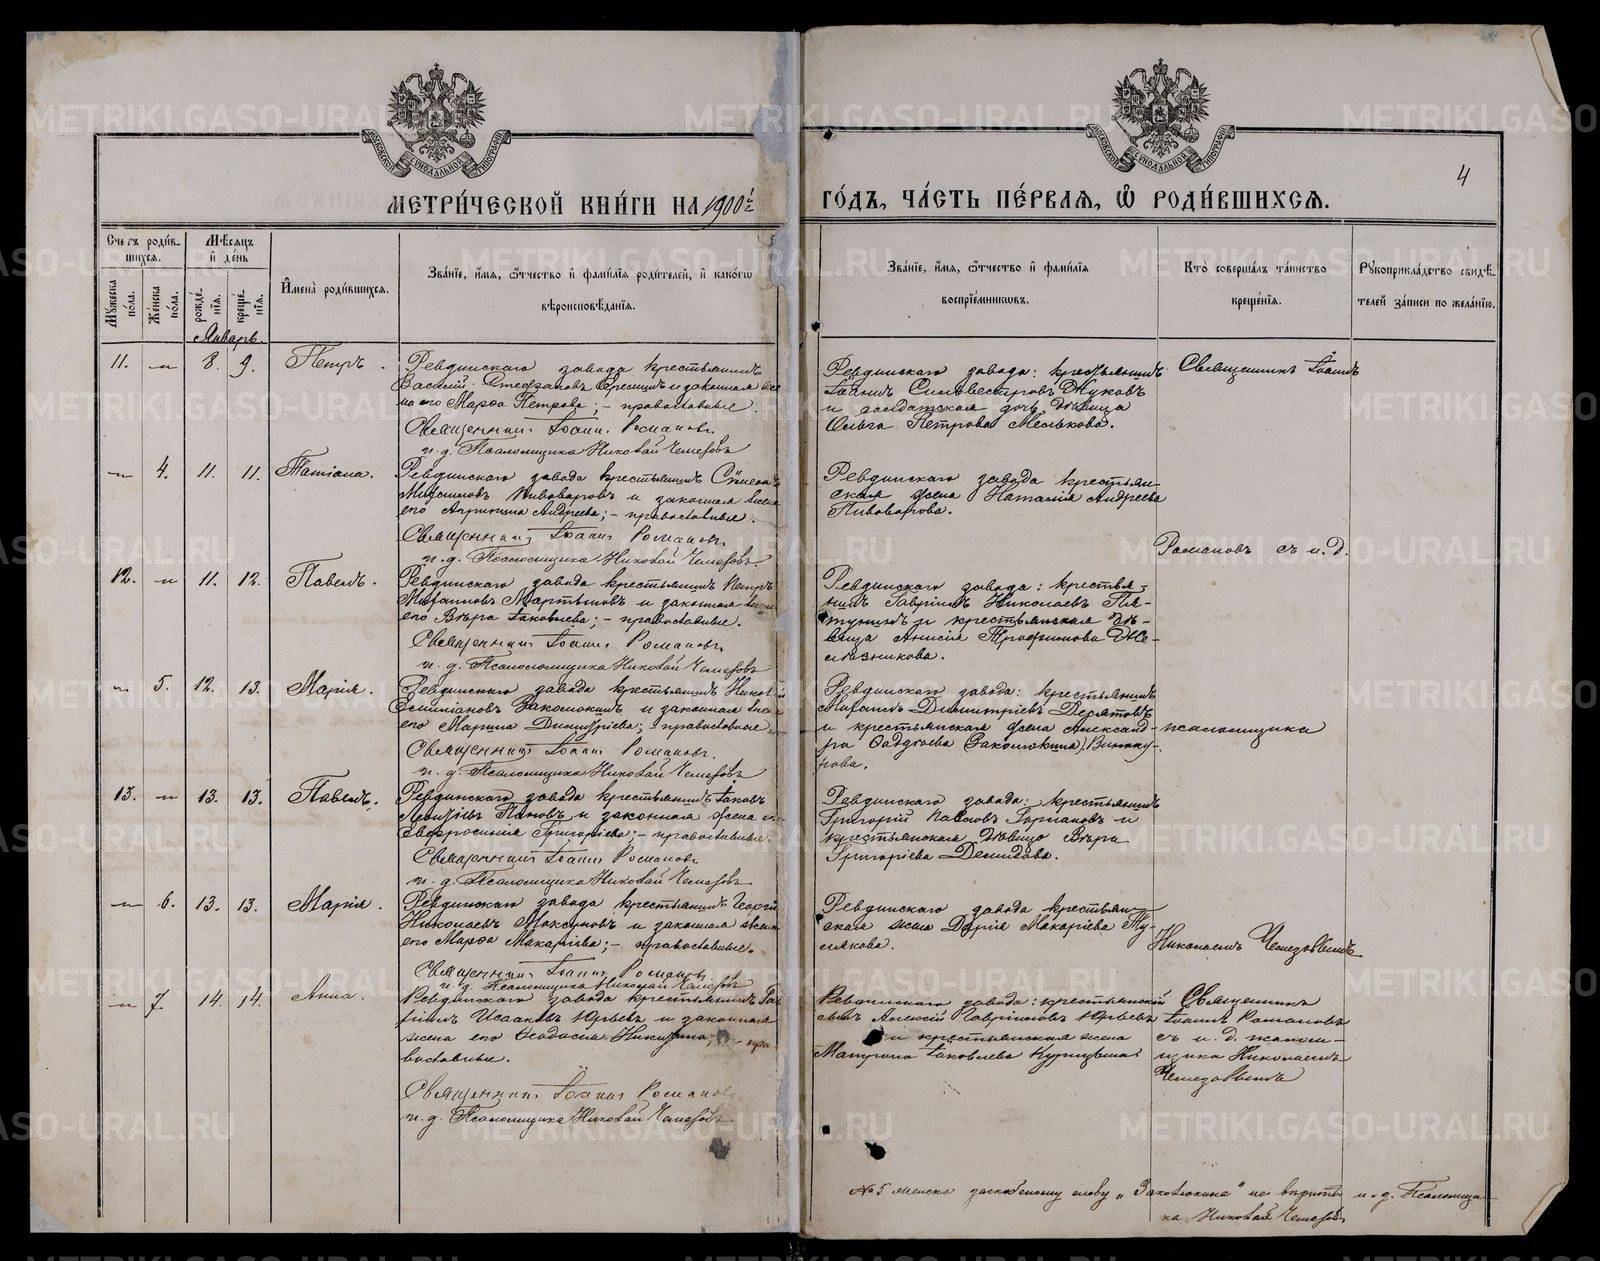 МЕТРИ́ЧЕСКОЙ КНИ́ГИ НА 1900 й
ГО́ДЪ, ЧА́СТЬ ПЕ́РВАѦ, Ѡ РОДИ́ВШИХСѦ.
4
Сче́тъ роди́в-
шихсѧ.
Мѣ́сѧцъ
и҆ де́нь
Мꙋжеска по́ла.
Же́нска по́ла.
рожде́нїѧ.
креще́нїѧ.
И҆мена̀ роди́вшихсѧ.
Зва́нїе, и҆́мѧ, ѻ҆́тчество и҆ фами́лїѧ роди́телей, и҆ како́гѡ
вѣроисповѣ́данїѧ.
Зва́нїе, и҆́мѧ, ѻ҆́тчество и҆ фами́лїѧ
воспрїе́мникѡвъ.
Кто̀ соверша́лъ та́инство
креще́нїѧ.
Рꙋкоприкла́дство свидѣ́-
телей за́писи по жела́нїю.
Январь.
11. — 8. 9. Петръ.
Ревдинскаго завода крестьянинъ
Василій Стефановъ и законная же-
на его Марѳа Петрова; – православные.
Священникъ Іоаннъ Романовъ
и. д. Псаломщика Николай Чемезовъ
Ревдинскаго завода: крестьянинъ
Іоаннъ Сильвестровъ Жуковъ
и солдатская дочь дѣвица
Ольга Петрова Мелькова.
Священникъ Іоаннъ
— 4. 11. 11. Татіана.
Ревдинскаго завода крестьянинъ Сѵмеонъ
Максимовъ Пивоваровъ и законная жена
его Агрипина Андреева; – православные.
Священникъ Іоаннъ Романовъ
и. д. Псаломщика Николай Чемезовъ
Ревдинскаго завода крестьян-
ская жена Наталія Андреева
Пивоварова.
Романовъ съ и. д.
12. — 11. 12. Павелъ.
Ревдинскаго завода крестьянинъ Петръ
Михаиловъ Мартыновъ и законная жена
его Вѣра Іаковлева; – православные.
Священникъ Іоаннъ Романовъ
и. д. Псаломщика Николай Чемезовъ
Ревдинскаго завода: крестья-
нинъ Гавріилъ Николаевъ Пя-
тунинъ и крестьянская дѣ-
вица Анисія Трофимова Же-
лѣзникова.
— 5. 12. 13. Марія.
Ревдинскаго завода крестьянинъ Николай
Емиліановъ и законная жена
его Марина Димитріева; – православные
Священникъ Іоаннъ Романовъ
и. д. Псаломщика Николай Чемезовъ
Ревдинскаго завода: крестьянинъ
Михаилъ Димитріевъ
и крестьянская жена Александ-
ра Ѳаддѣева
псаломщика
13. — 13. 13. Павелъ.
Ревдинскаго завода крестьянинъ Іаковъ
Леонтіевъ Пановъ и законная жена его
Евфросинія Григоріева; – православные.
Священникъ Іоаннъ Романовъ
и. д. Псаломщика Николай Чемезовъ
Ревдинскаго завода: крестьянинъ
Григорій Павловъ и
крестьянская дѣвица Вѣра
Григоріева Демидова.
— 6. 13. 13. Марія.
Ревдинскаго завода крестьянинъ Георгій
Николаевъ и законная жена
его Марѳа Макаріева; – православные.
Священникъ Іоаннъ Романовъ
и. д. Псаломщика Николай Чемезовъ
Ревдинскаго завода крестьян-
ская жена Дарія Макаріева
Николаемъ Чемезовымъ
— 7. 14. 14. Анна.
Ревдинскаго завода крестьянинъ Гав-
ріилъ Исааковъ Юрьевъ и законная
жена его Ѳеодосіа Никитина; – пра-
вославные.
Священникъ Іоаннъ Романовъ
и. д. Псаломщика Николай Чемезовъ
Ревдинскаго завода: крестьянскій
сынъ Алексій Гавріиловъ Юрьевъ
и крестьянская жена
Матрона Іаковлева
Священникъ
Іоаннъ Романовъ
съ и. д. псалом-
щика Николаемъ
Чемезовымъ
№ 5 женска слову не вѣрить и. д. Псаломщи-
ка Николай Чемезовъ
METRIKI.GASO-URAL.RU